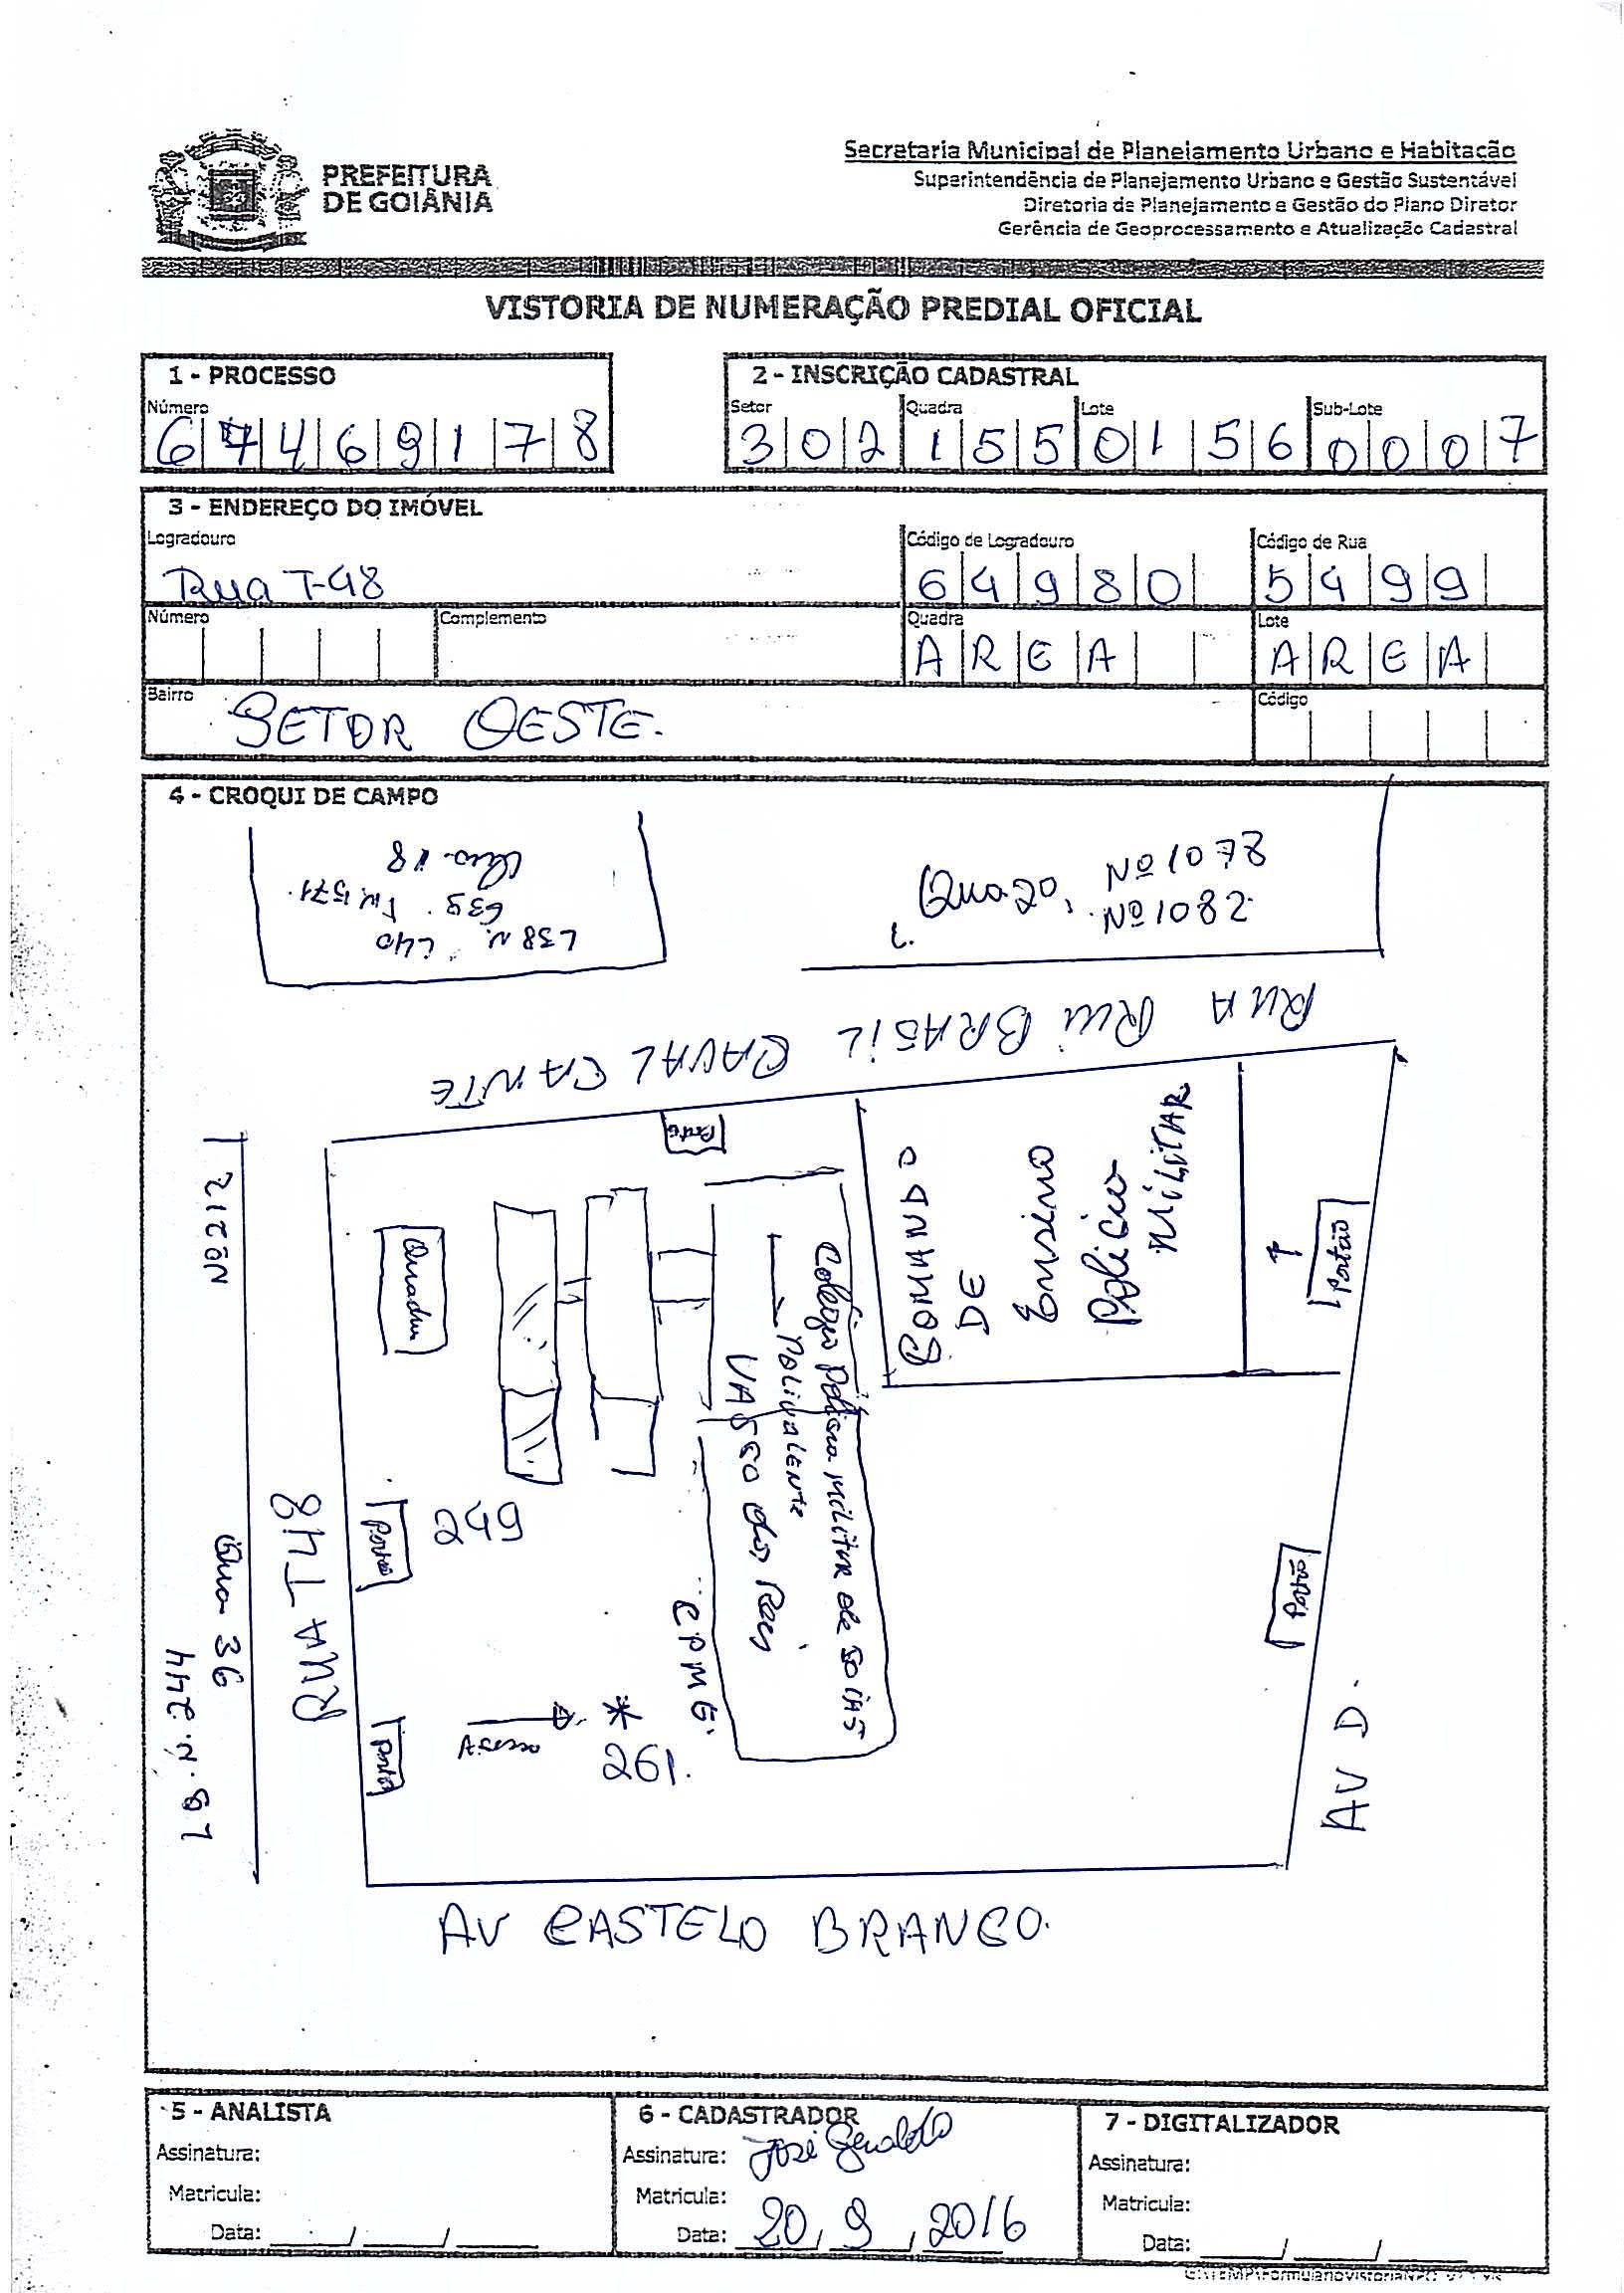 PREFEITURA
DE GOIÂNIA
Secretaria Municipal de Planejamento Urbano e Habitação
Superintendência de Planejamento Urbano e Gestão Sustentável
Diretoria de Planejamento e Gestão do Plano Diretor
Gerência de Geoprocessamento e Atualização Cadastral
VISTORIA DE NUMERAÇÃO PREDIAL OFICIAL
1 - PROCESSO
Número
67469178
2 - INSCRIÇÃO CADASTRAL
Setor Quadra Lote Sub-Lote
302 155 0156 0007
3 - ENDEREÇO DO IMÓVEL
Logradouro Código de Logradouro Código de Rua
Rua T-48 64980 5499
Número Complemento Quadra Lote
AREA AREA
Bairro Código
SETOR OESTE.
4 - CROQUI DE CAMPO
18
L38 N.
639.
L40
571.
Qua 20, Nº 1078
Nº 1082
RUA RUI BRASIL CAVALCANTE
Nº 212
Qua 36
L 9 N. 244
RUA T48
Quadra
Portão
249
Portão
Acesso
*
261.
CPMG.
Colégio Policia Militar de GOIAS
Polivalente
VASCO dos Reis
COMANDO
DE
Ensino
Policia
MILITAR
Portão
Portão
AV D.
AV CASTELO BRANCO.
5 - ANALISTA
Assinatura:
Matricula:
Data: / /
6 - CADASTRADOR
Assinatura: José Geraldo
Matricula:
Data: 20/9/2016
7 - DIGITALIZADOR
Assinatura:
Matricula:
Data: / /